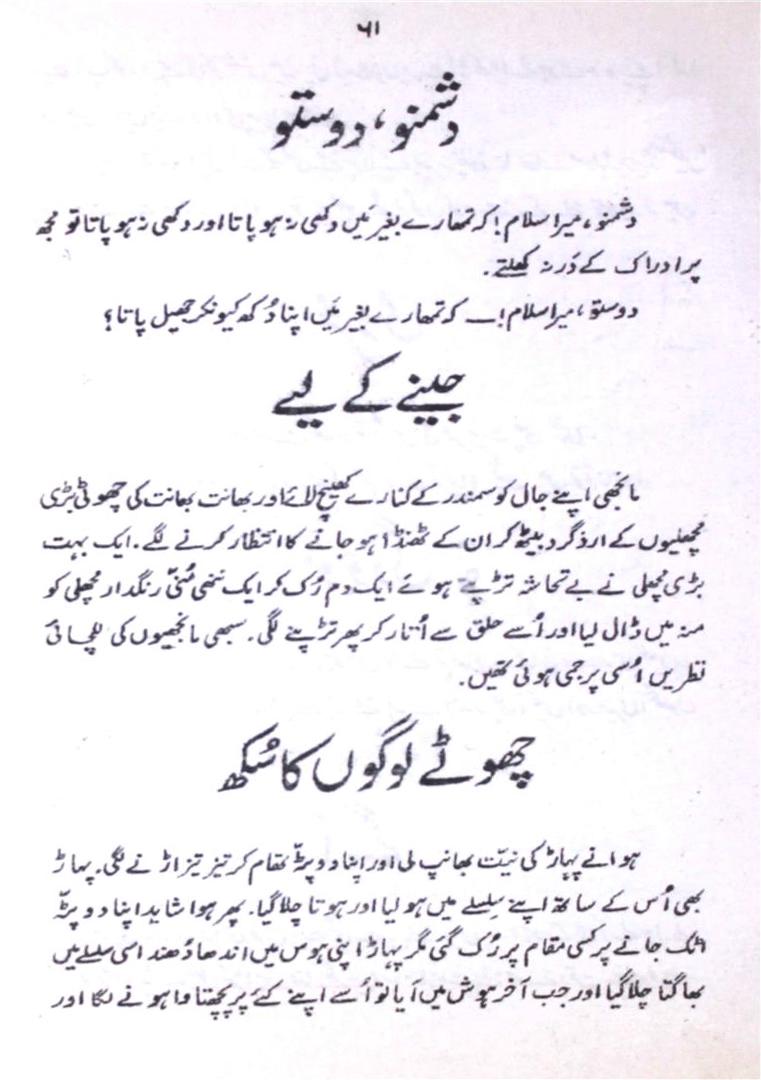 ۶۱
دشمنو، دوستو
دشمنو، میرا سلام! کہ تمھارے بغیر میں دکھی نہ ہو پاتا اور دکھی نہ ہو پاتا تو مجھ
پر ادراک کے دَر نہ کھلتے۔
دوستو، میرا سلام! — کہ تمھارے بغیر مَیں اپنا دُکھ کیونکر جھیل پاتا؟
جینے کے لیے
مانجھی اپنے جال کو سمندر کے کنارے کھینچ لائے اور بھانت بھانت کی چھوٹی بڑی
مچھلیوں کے اردگرد بیٹھ کر ان کے ٹھنڈا ہو جانے کا انتظار کرنے لگے۔ ایک بہت
بڑی مچھلی نے بے تحاشہ تڑپتے ہوئے ایک دم رُک کر ایک ننھی مُنّی رنگدار مچھلی کو
منہ میں ڈال لیا اور اُسے حلق سے اُتار کر پھر تڑپنے لگی۔ سبھی مانجھیوں کی للچائی
نظریں اُسی پر جمی ہوئی تھیں۔
چھوٹے لوگوں کا سُکھ
ہوا نے پہاڑ کی نیّت بھانپ لی اور اپنا دوپٹّہ تھام کر تیز تیز اڑنے لگی۔ پہاڑ
بھی اُس کے ساتھ اپنے سِلسِلے میں ہو لیا اور ہوتا چلا گیا۔ پھر ہوا شاید اپنا دوپٹّہ
اٹک جانے پر کسی مقام پر رُک گئی مگر پہاڑ اپنی ہوس میں اندھا دُھند اسی سلسلے میں
بھاگتا چلا گیا اور جب آخر ہوش میں آیا تو اُسے اپنے کئے پر پچھتاوا ہونے لگا اور